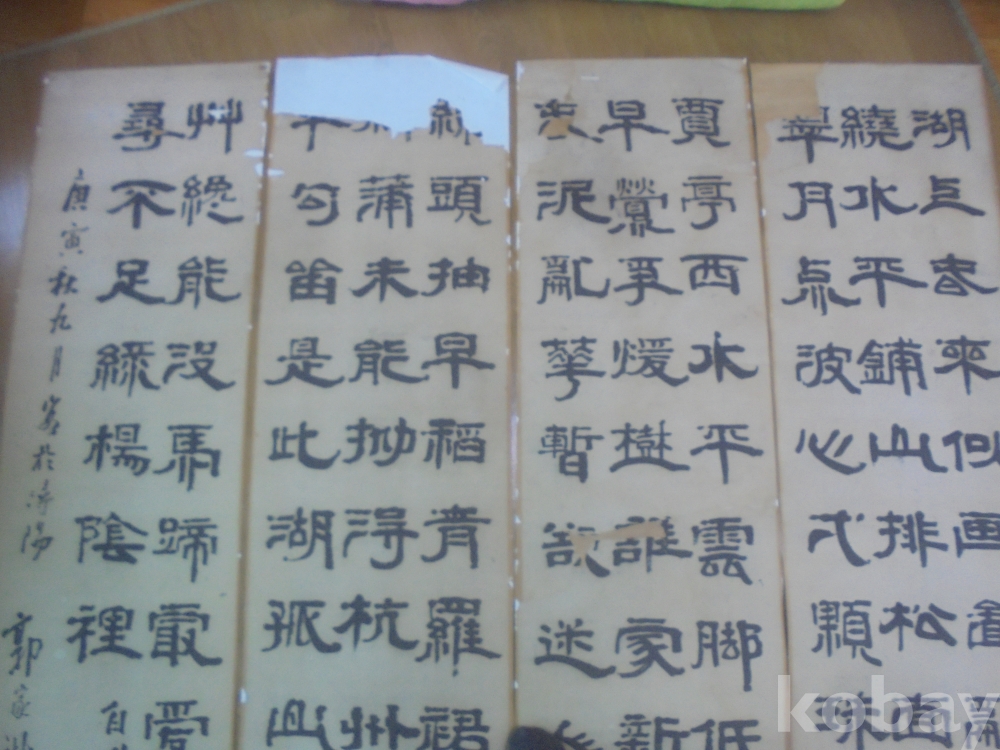 湖上春來似画啚
繞水平鋪山排松
翠月点波心弌顆珠
賈亭西水平雲脚低
早鶯爭煖樹誰家新
泥亂華暫欲迷
頭抽早稻青羅裙
蒲未能拋得杭州
勾畱是此湖孤山
艸纔能沒馬蹄最愛
尋不足綠楊陰裡
庚寅秋九月客於潯陽
郭家
kobay